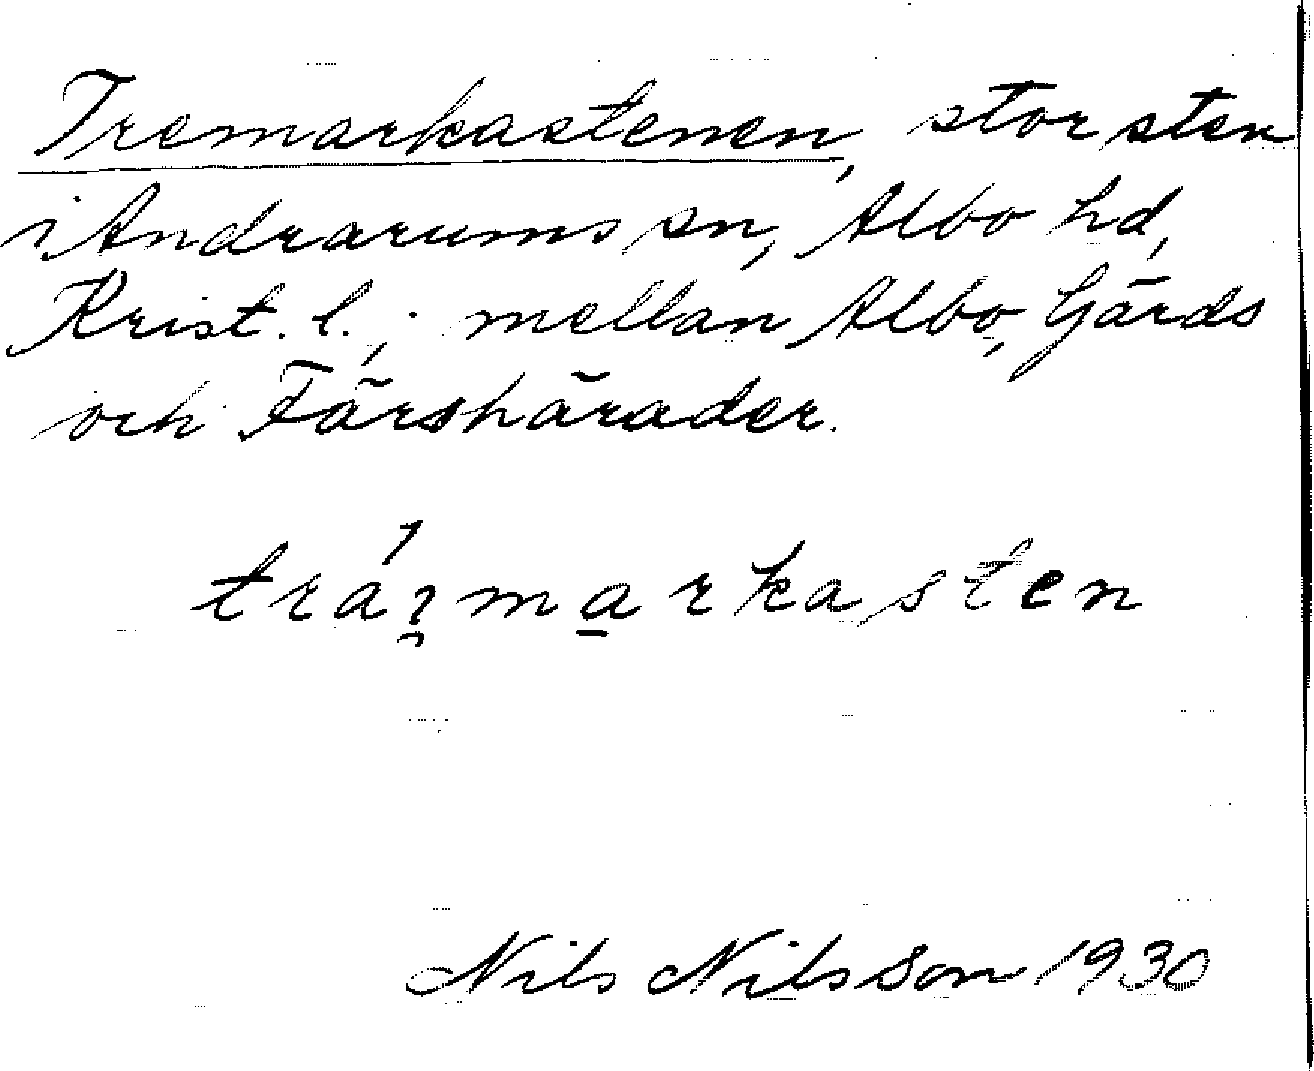 Tremarkastenen, stor sten
i Andrarums sn, Albo hd,
Krist. l.; mellan Albo, Gärds
och Färs härader.
tráꝛ̯ma̱rkasten
Nils Nilsson 1930